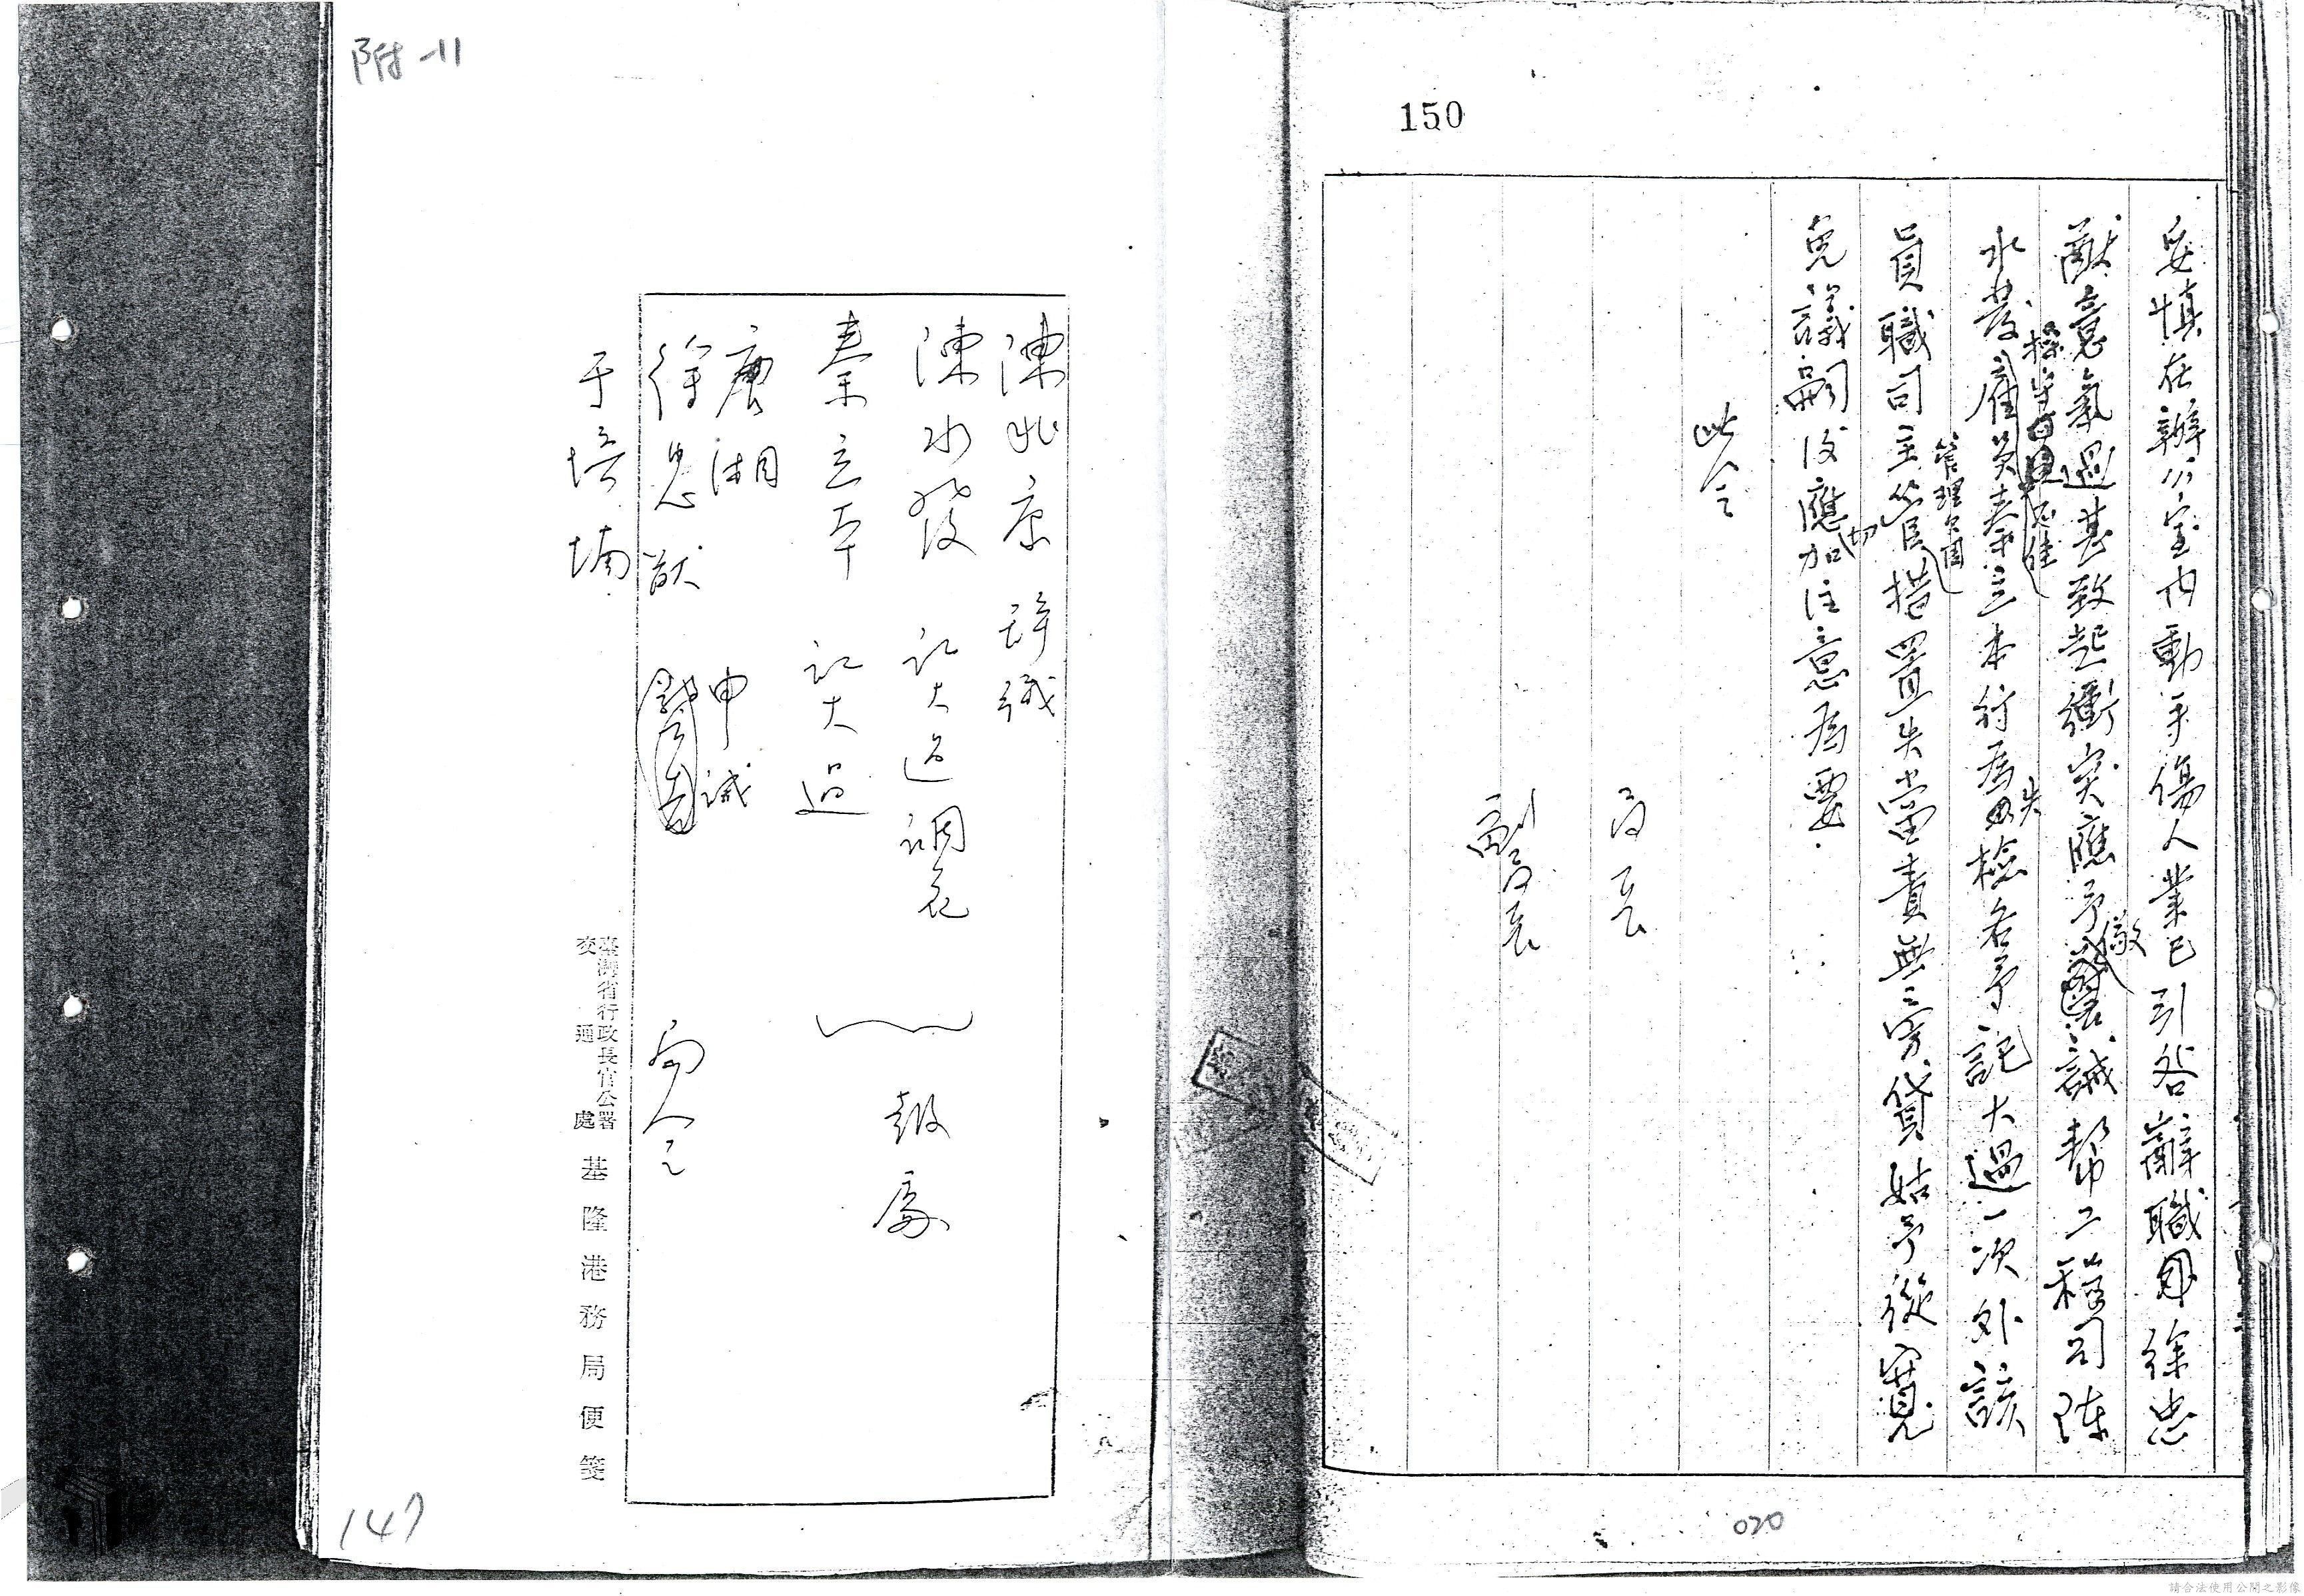 150
妥慎在辦公室內動手傷人業已引咎辭職司徐忠
猷意氣過甚致起衝突應予儆誡幫工程司陳
操守不佳
水發雇員秦立本行為失檢各予記大過一次外該
管理欠周
員職司主管措置失當責無旁貸姑予從寬
免議嗣後應切加注意為要
此令
局長
副局長
020
附-11
陳兆康 辭職
陳水發 記大過調充
秦立本 記大過
報處
唐湘 申誡
徐忠猷
局令
于培堉
臺灣省行政長官公署
交通處
基隆港務局便箋
147
請合法使用公開之影像